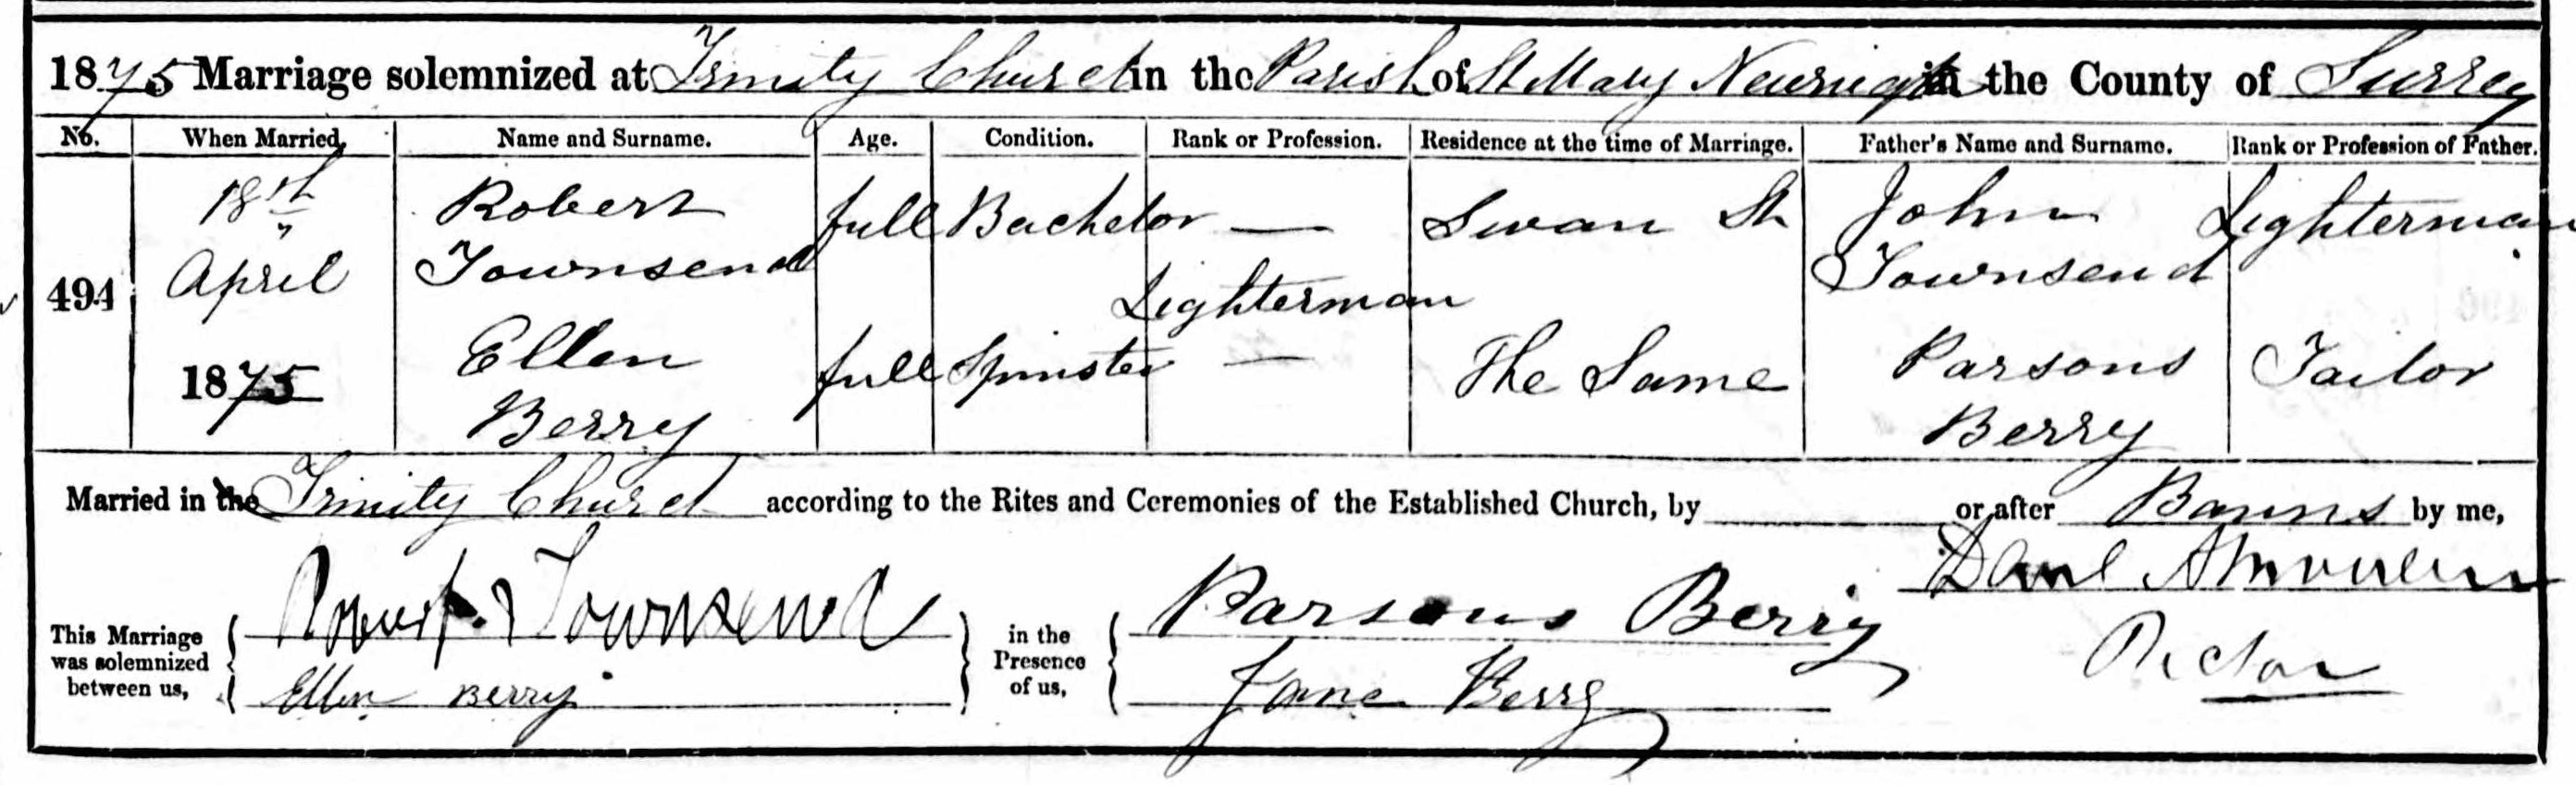 1875 Marriage solemnized at Trinity Church in the Parish of St Mary Newington in the County of Surrey
No. When Married. Name and Surname. Age. Condition. Rank or Profession. Residence at the time of Marriage. Father's Name and Surname. Rank or Profession of Father.
494 18th April 1875
Robert Townsend full Bachelor — Lighterman Swan St John Townsend Lighterman
Ellen Berry full Spinster — The Same Parsons Berry Tailor
Married in the Trinity Church according to the Rites and Ceremonies of the Established Church, by or after Banns by me,
This Marriage was solemnized between us, Robert Townsend Ellen Berry in the Presence of us, Parsons Berry Jane Berry
Rector